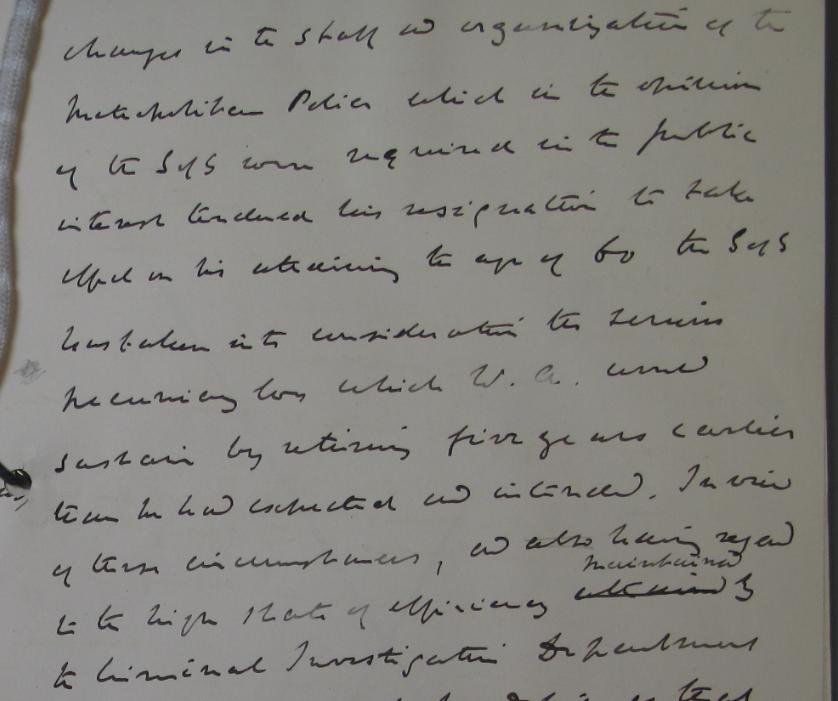 changes in the Staff and organization of the
Metropolitan Police which in the opinion
of the S of S were required in the public
interest tendered his resignation to take
effect on his attaining the age of 60 the S of S
has taken into consideration the serious
pecuniary loss which W. A. would
sustain by retiring five years earlier
than he had expected and intended. In view
of these circumstances, and also having regard
maintained
to the high state of efficiency attained by
the Criminal Investigation Department